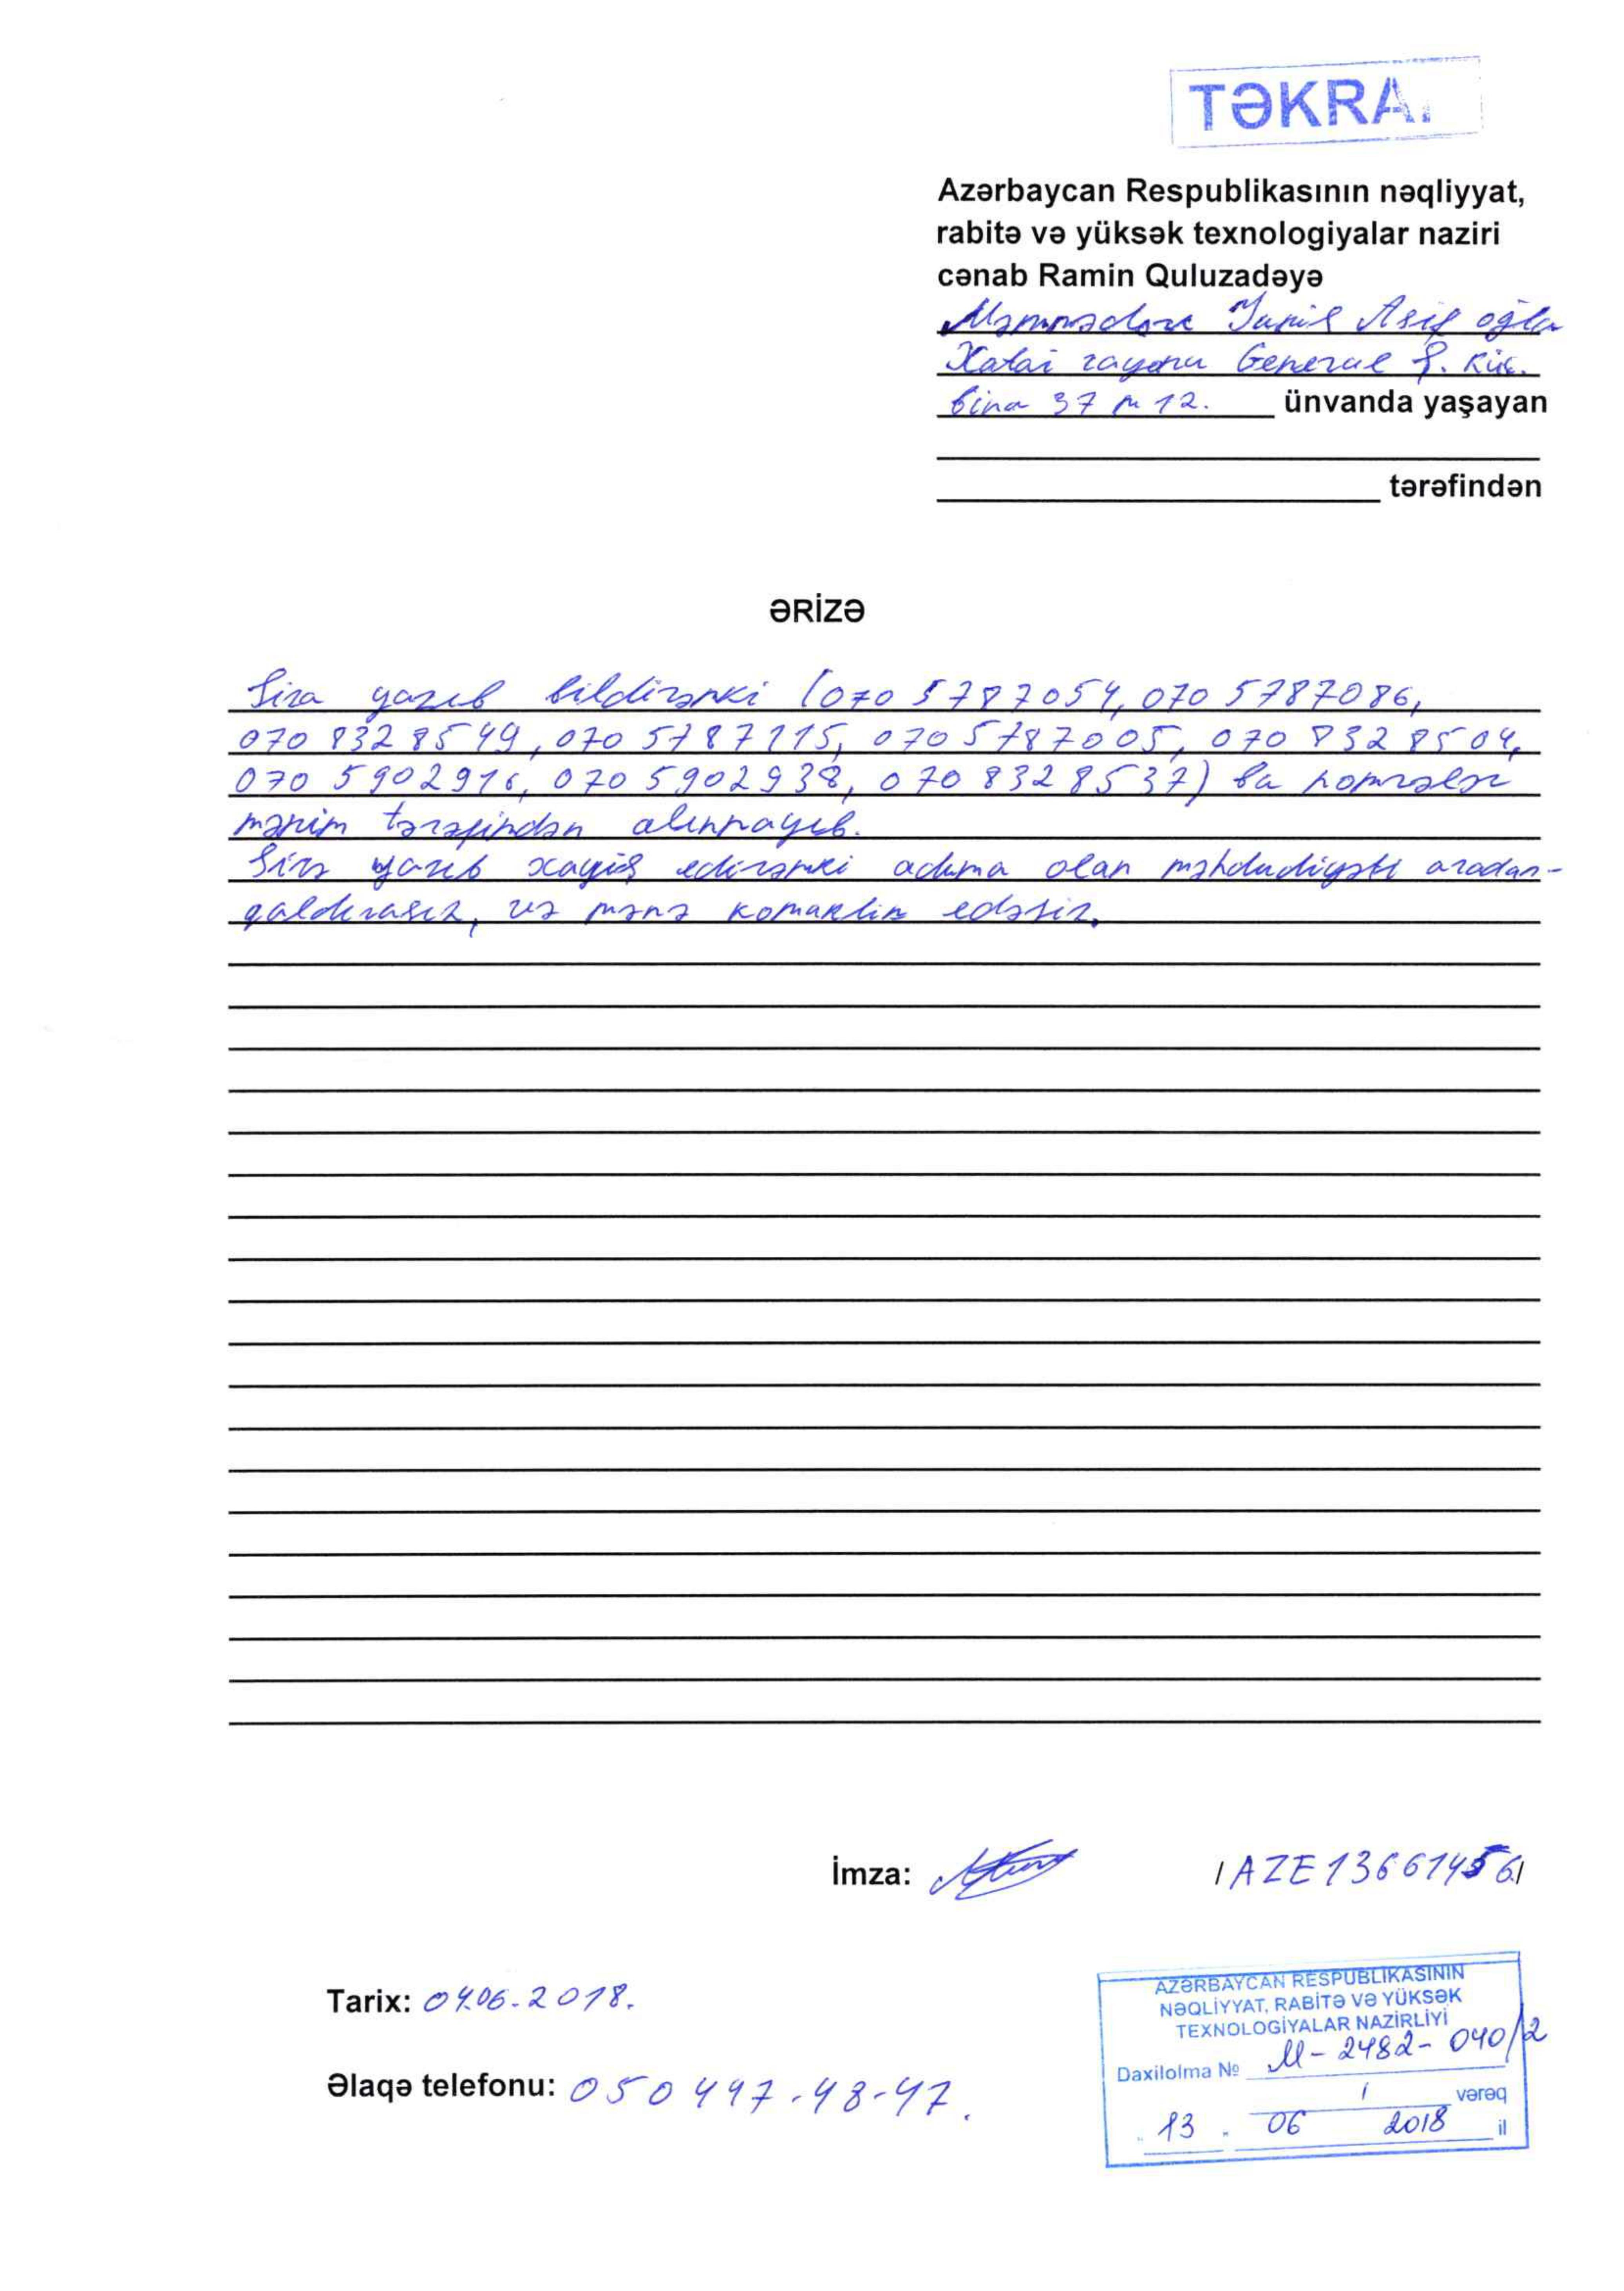 TƏKRA
Azərbaycan Respublikasının nəqliyyat,
rabitə və yüksək texnologiyalar naziri
cənab Ramin Quluzadəyə
Məmmədov Asif oğlu
Xətai rayonu General Ş. Küç.
bina 37 m 12. ünvanda yaşayan
tərəfindən
ƏRİZƏ
Sizə yazıb bildirəmki (070 5787054, 070 5787086,
070 8328549, 070 5787115, 070 5787005, 070 8328504,
070 5902916, 070 5902938, 070 8328537) bu nomrələr
mənim tərəfindən alınmayıb.
Sizə yazıb xayiş edirəmki adıma olan məhdudiyəti aradan-
qaldırasız, və mənə edəsiz.
İmza: /AZE13661456/
Tarix: 04.06.2018.
AZƏRBAYCAN RESPUBLİKASININ
NƏQLİYYAT, RABİTƏ VƏ YÜKSƏK
TEXNOLOGİYALAR NAZİRLİYİ
Daxilolma № M-2482-040/2
1 vərəq
13. 06 2018 il
Əlaqə telefonu: 050 447-48-47.